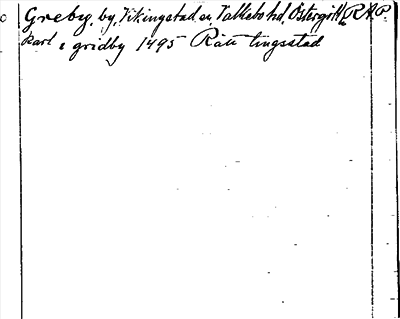 Greby, by, Vikingstad sn, Valkebo hd, Östergötl. RAP.
Karl i gridby 1495 Rätt tingsstad